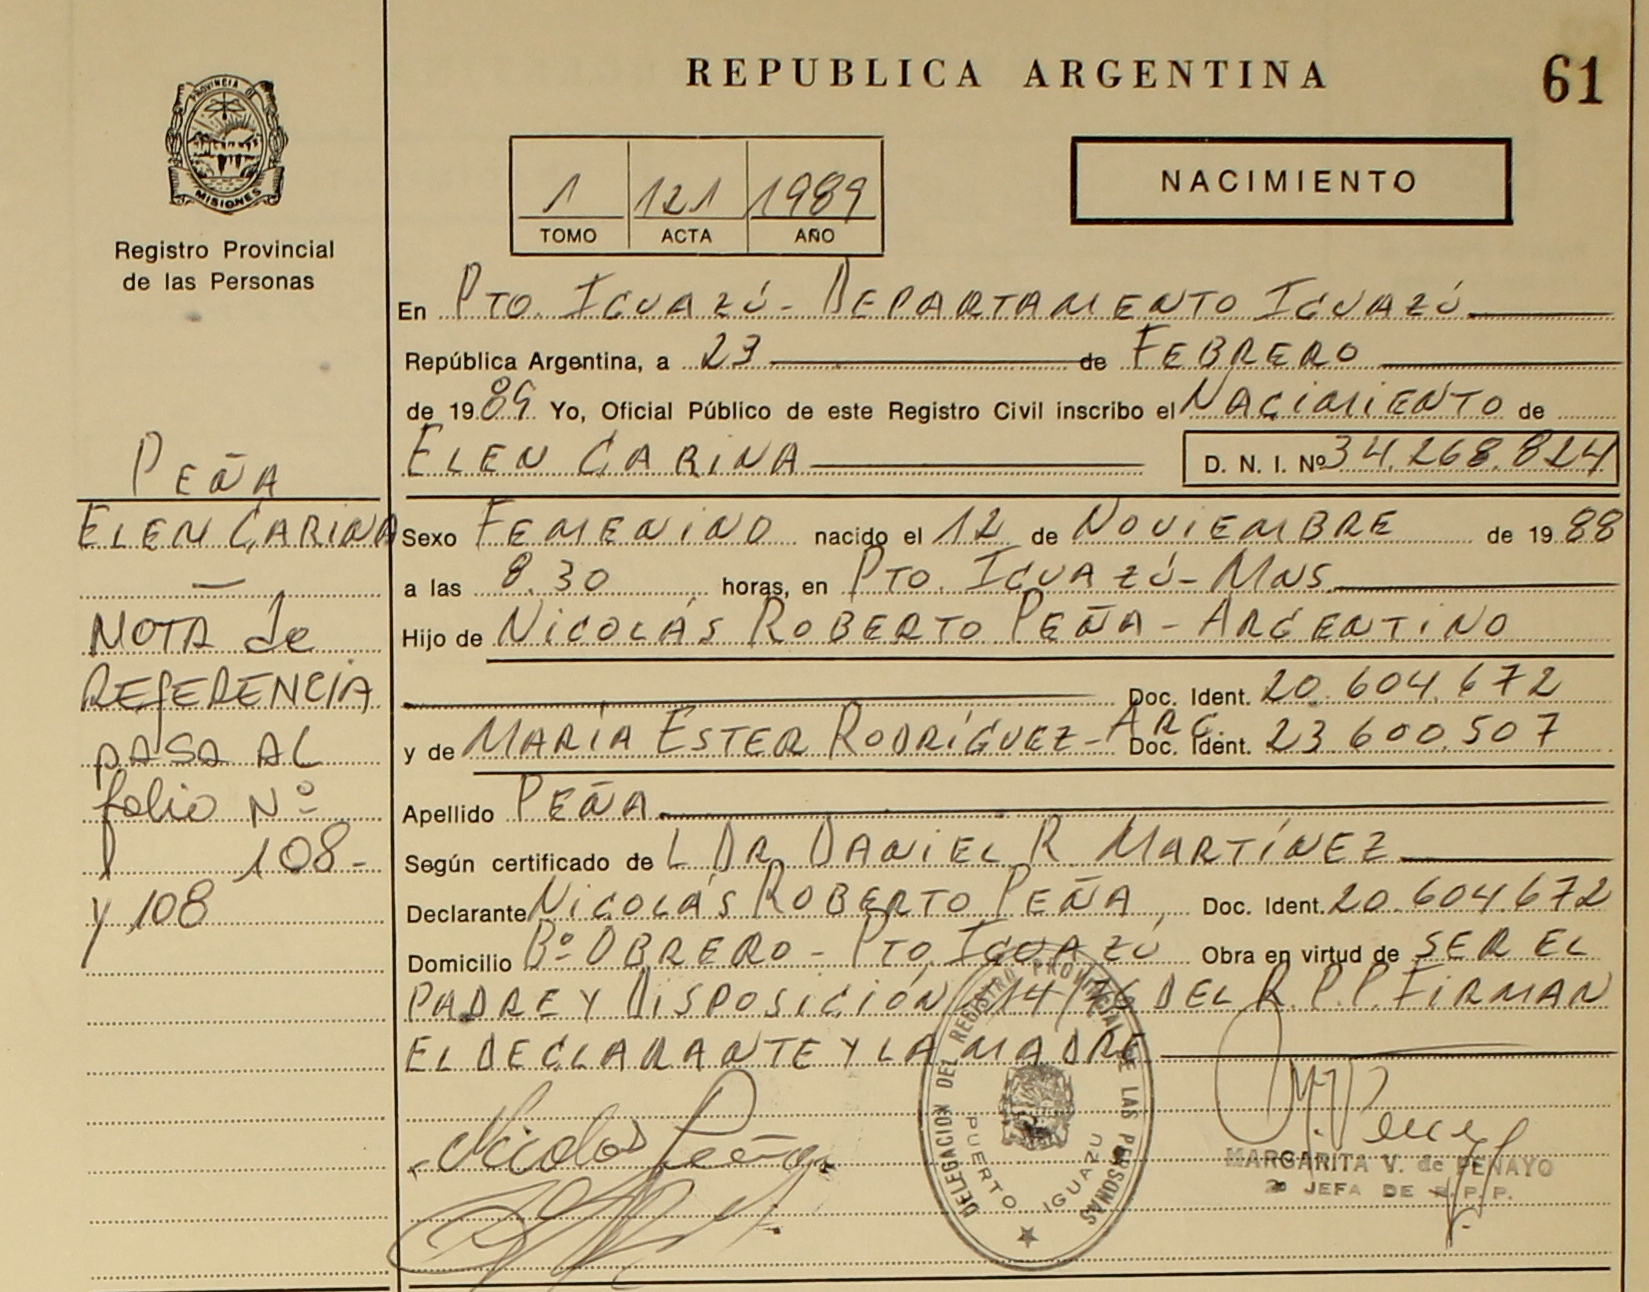 REPUBLICA ARGENTINA
61
PROVINCIA DE
MISIONES
Registro Provincial
de las Personas
1 121 1989
TOMO ACTA AÑO
NACIMIENTO
En PTO. IGUAZÚ - DEPARTAMENTO IGUAZÚ
República Argentina, a 23 de FEBRERO
de 1989 Yo, Oficial Público de este Registro Civil inscribo el NACIMIENTO de
ELEN CARINA D. N. I. Nº 34.268.824
Sexo FEMENINO nacido el 12 de NOVIEMBRE de 1988
a las 8.30 horas, en PTO. IGUAZÚ - MNS.
Hijo de NICOLÁS ROBERTO PEÑA - ARGENTINO
Doc. Ident. 20.604.672
y de MARÍA ESTER RODRÍGUEZ - ARG. Doc. Ident. 23.600.507
Apellido PEÑA
Según certificado de L DR. DANIEL R. MARTÍNEZ
Declarante NICOLÁS ROBERTO PEÑA, Doc. Ident. 20.604.672
Domicilio Bº OBRERO - PTO. IGUAZÚ Obra en virtud de SER EL
PADRE Y DISPOSICIÓN 14/76 DEL R.P.P. FIRMAN
EL DECLARANTE Y LA MADRE
PEÑA
ELEN CARINA
NOTA de
REFERENCIA
PASA AL
folio Nº
108-
y 108
Nicolas Peña
DELEGACION DEL REGISTRO PROVINCIAL DE LAS PERSONAS
PUERTO IGUAZU
MARGARITA V. de PENAYO
JEFA DE R.P.P.